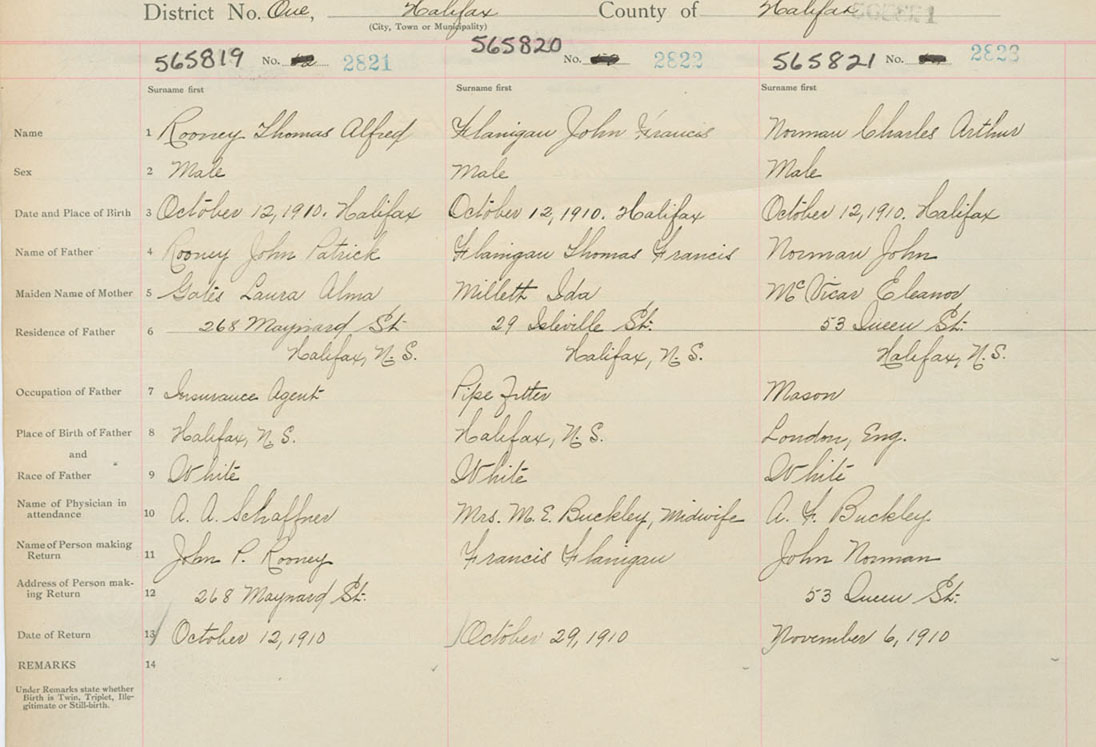 District No. One, Halifax County of Halifax
(City, Town or Municipality)
565819 No. 2821 565820 No. 2822 565821 No. 2823
Surname first Surname first Surname first
Name 1 Rooney Thomas Alfred Flanigan John Francis Norman Charles Arthur
Sex 2 Male Male Male
Date and Place of Birth 3 October 12, 1910. Halifax October 12, 1910. Halifax October 12, 1910. Halifax
Name of Father 4 Rooney John Patrick Flanigan Thomas Francis Norman John
Maiden Name of Mother 5 Gates Laura Alma Millett Ida McVicar Eleanor
Residence of Father 6 268 Maynard St. 29 Isleville St. 53 Queen St.
Halifax, N.S. Halifax, N.S. Halifax, N.S.
Occupation of Father 7 Insurance Agent Pipe Fitter Mason
Place of Birth of Father 8 Halifax, N.S. Halifax, N.S. London, Eng.
and
Race of Father 9 White White White
Name of Physician in
attendance 10 A. A. Schaffner Mrs. M. E. Buckley, Midwife A. F. Buckley
Name of Person making
Return 11 John P. Rooney Francis Flanigan John Norman
Address of Person mak-
ing Return 12 268 Maynard St. 53 Queen St.
Date of Return 13 October 12, 1910 October 29, 1910 November 6, 1910
REMARKS 14
Under Remarks state whether
Birth is Twin, Triplet, Ille-
gitimate or Still-birth.